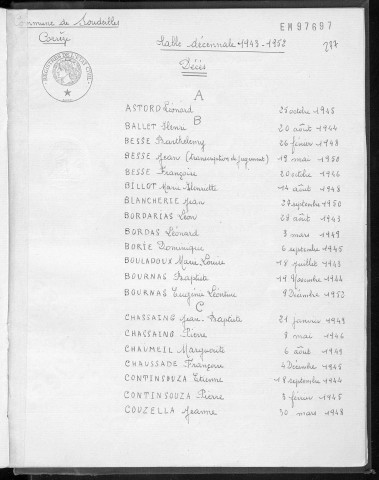 Commune de Soudeilles
EM97697
Corrèze
Table décennale 1943-1952
277
Décès
A
ASTORD Léonard 25 octobre 1945
B
BALLET Henri 20 août 1944
BESSE Barthélemy 26 février 1948
BESSE Jean (transcription de jugement) 19 mai 1950
BESSE Françoise 20 octobre 1946
BILLOT Marie Henriette 14 août 1948
BLANCHERIE Jean 27 septembre 1950
BORDARIAS Léon 28 août 1943
BORDAS Léonard 3 mars 1949
BORIE Dominique 6 septembre 1945
BOULADOUX Marie Louise 18 juillet 1943
BOURNAS Baptiste 11 novembre 1944
BOURNAS Eugénie Léontine 9 Décembre 1952
C
CHASSAING Jean-Baptiste 21 janvier 1949
CHASSAING Pierre 8 mai 1946
CHAUMEIL Marguerite 6 août 1949
CHAUSSADE François 4 Décembre 1945
CONTINSOUZA Etienne 18 septembre 1944
CONTINSOUZA Pierre 3 février 1945
COUZELLA Jeanne 30 mars 1948